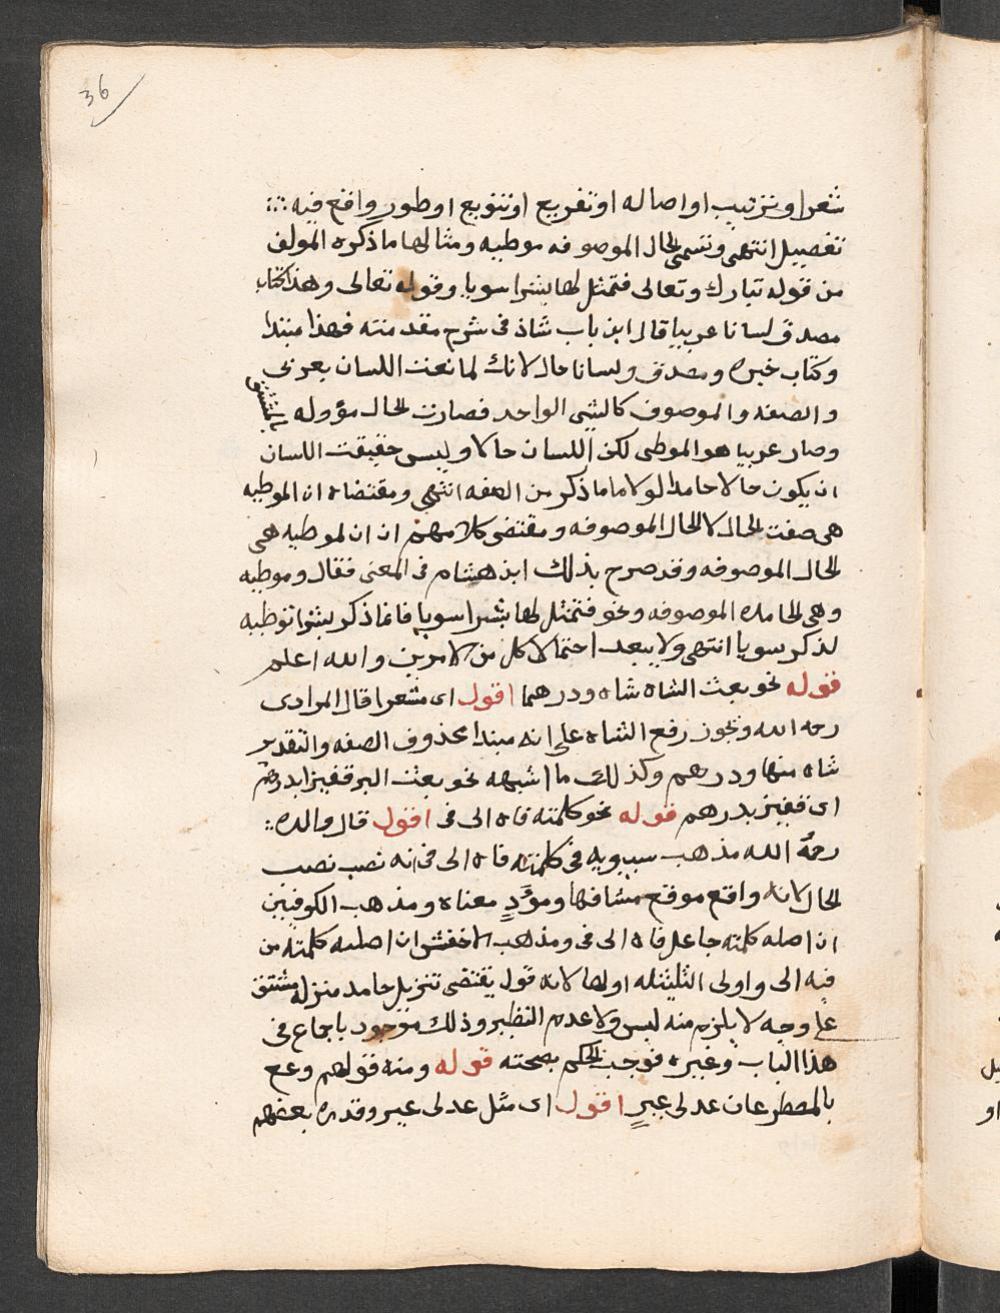 36
شعر او ترتيب او اصاله او تفريع او تنويع او طور واقع فيه
تفصيل انتهى وتسمى الحال الموصوفه موطيه ومثالها ما ذكره المولف
من قوله تبارك وتعالى فتمثل لها بشرا سويا وقوله تعالى وهذا كتاب
مصدق لسانا عربيا قال ابن باب شاذ فى شرح مقدمته فهذا مبتدا
وكتاب خبره ومصدق ولسانا حال لانك لما نعت اللسان بعربى
والصفه والموصوف كالشى الواحد فصارت الحال مؤوله بالمشتق
وصار عربيا هو الموطى لكن اللسان حالا وليس حقيقت اللسان
ان يكون حالا جامدا لولا ما ما ذكر من الصفه انتهى ومقتضاه ان الموطيه
هى صفت الحال لا الحال الموصوفه ومقتضى كلامهم ان ان لموطيه هى
الحال الموصوفه وقد صرح بذلك ابن هشام فى المغنى فقال وموطيه
وهى الجامده الموصوفه ونحو فتمثل لها بشرا سويا فانما ذكر بشرا توطيه
لذكر سويا انتهى ولا يبعد احتمالا كل من الامرين والله اعلم
قوله نحو بعت الشاه شاه ودرهما اقول اى مشعرا قال المرادى
رحمه الله ويجوز رفع الشاه على انه مبتدا محذوف الصفه والتقدير
شاه منها ودرهم وكذلك ما اشبهه نحو بعت البر قفيزا بدرهم
اى قفيز بدرهم قوله نحو كلمته فاه الى فى اقول قال والده
رحمه الله مذهب سيبويه فى كلمته فاه الى فى انه نصب نصب
الحال لانه واقع موقع مشافها ومؤدٍ معناه ومذهب الكوفيين
ان اصله كلمته جاعل فاه الى فى ومذهب الاخفش ان اصله كلمته من
فيه الى واولى الثلثله اولها لانه قول يقتضى تنزيل جامد منزله مشتق
على وجه لا يلزم منه لبس ولا عدم النظير وذلك موجود باجماع فى
هذا الباب وغيره فوجب الحكم بصحته قوله ومنه قولهم وقع
بالمصطرعان عدلى عيرٍ اقول اى مثل عدلى عير وقدره بعضهم